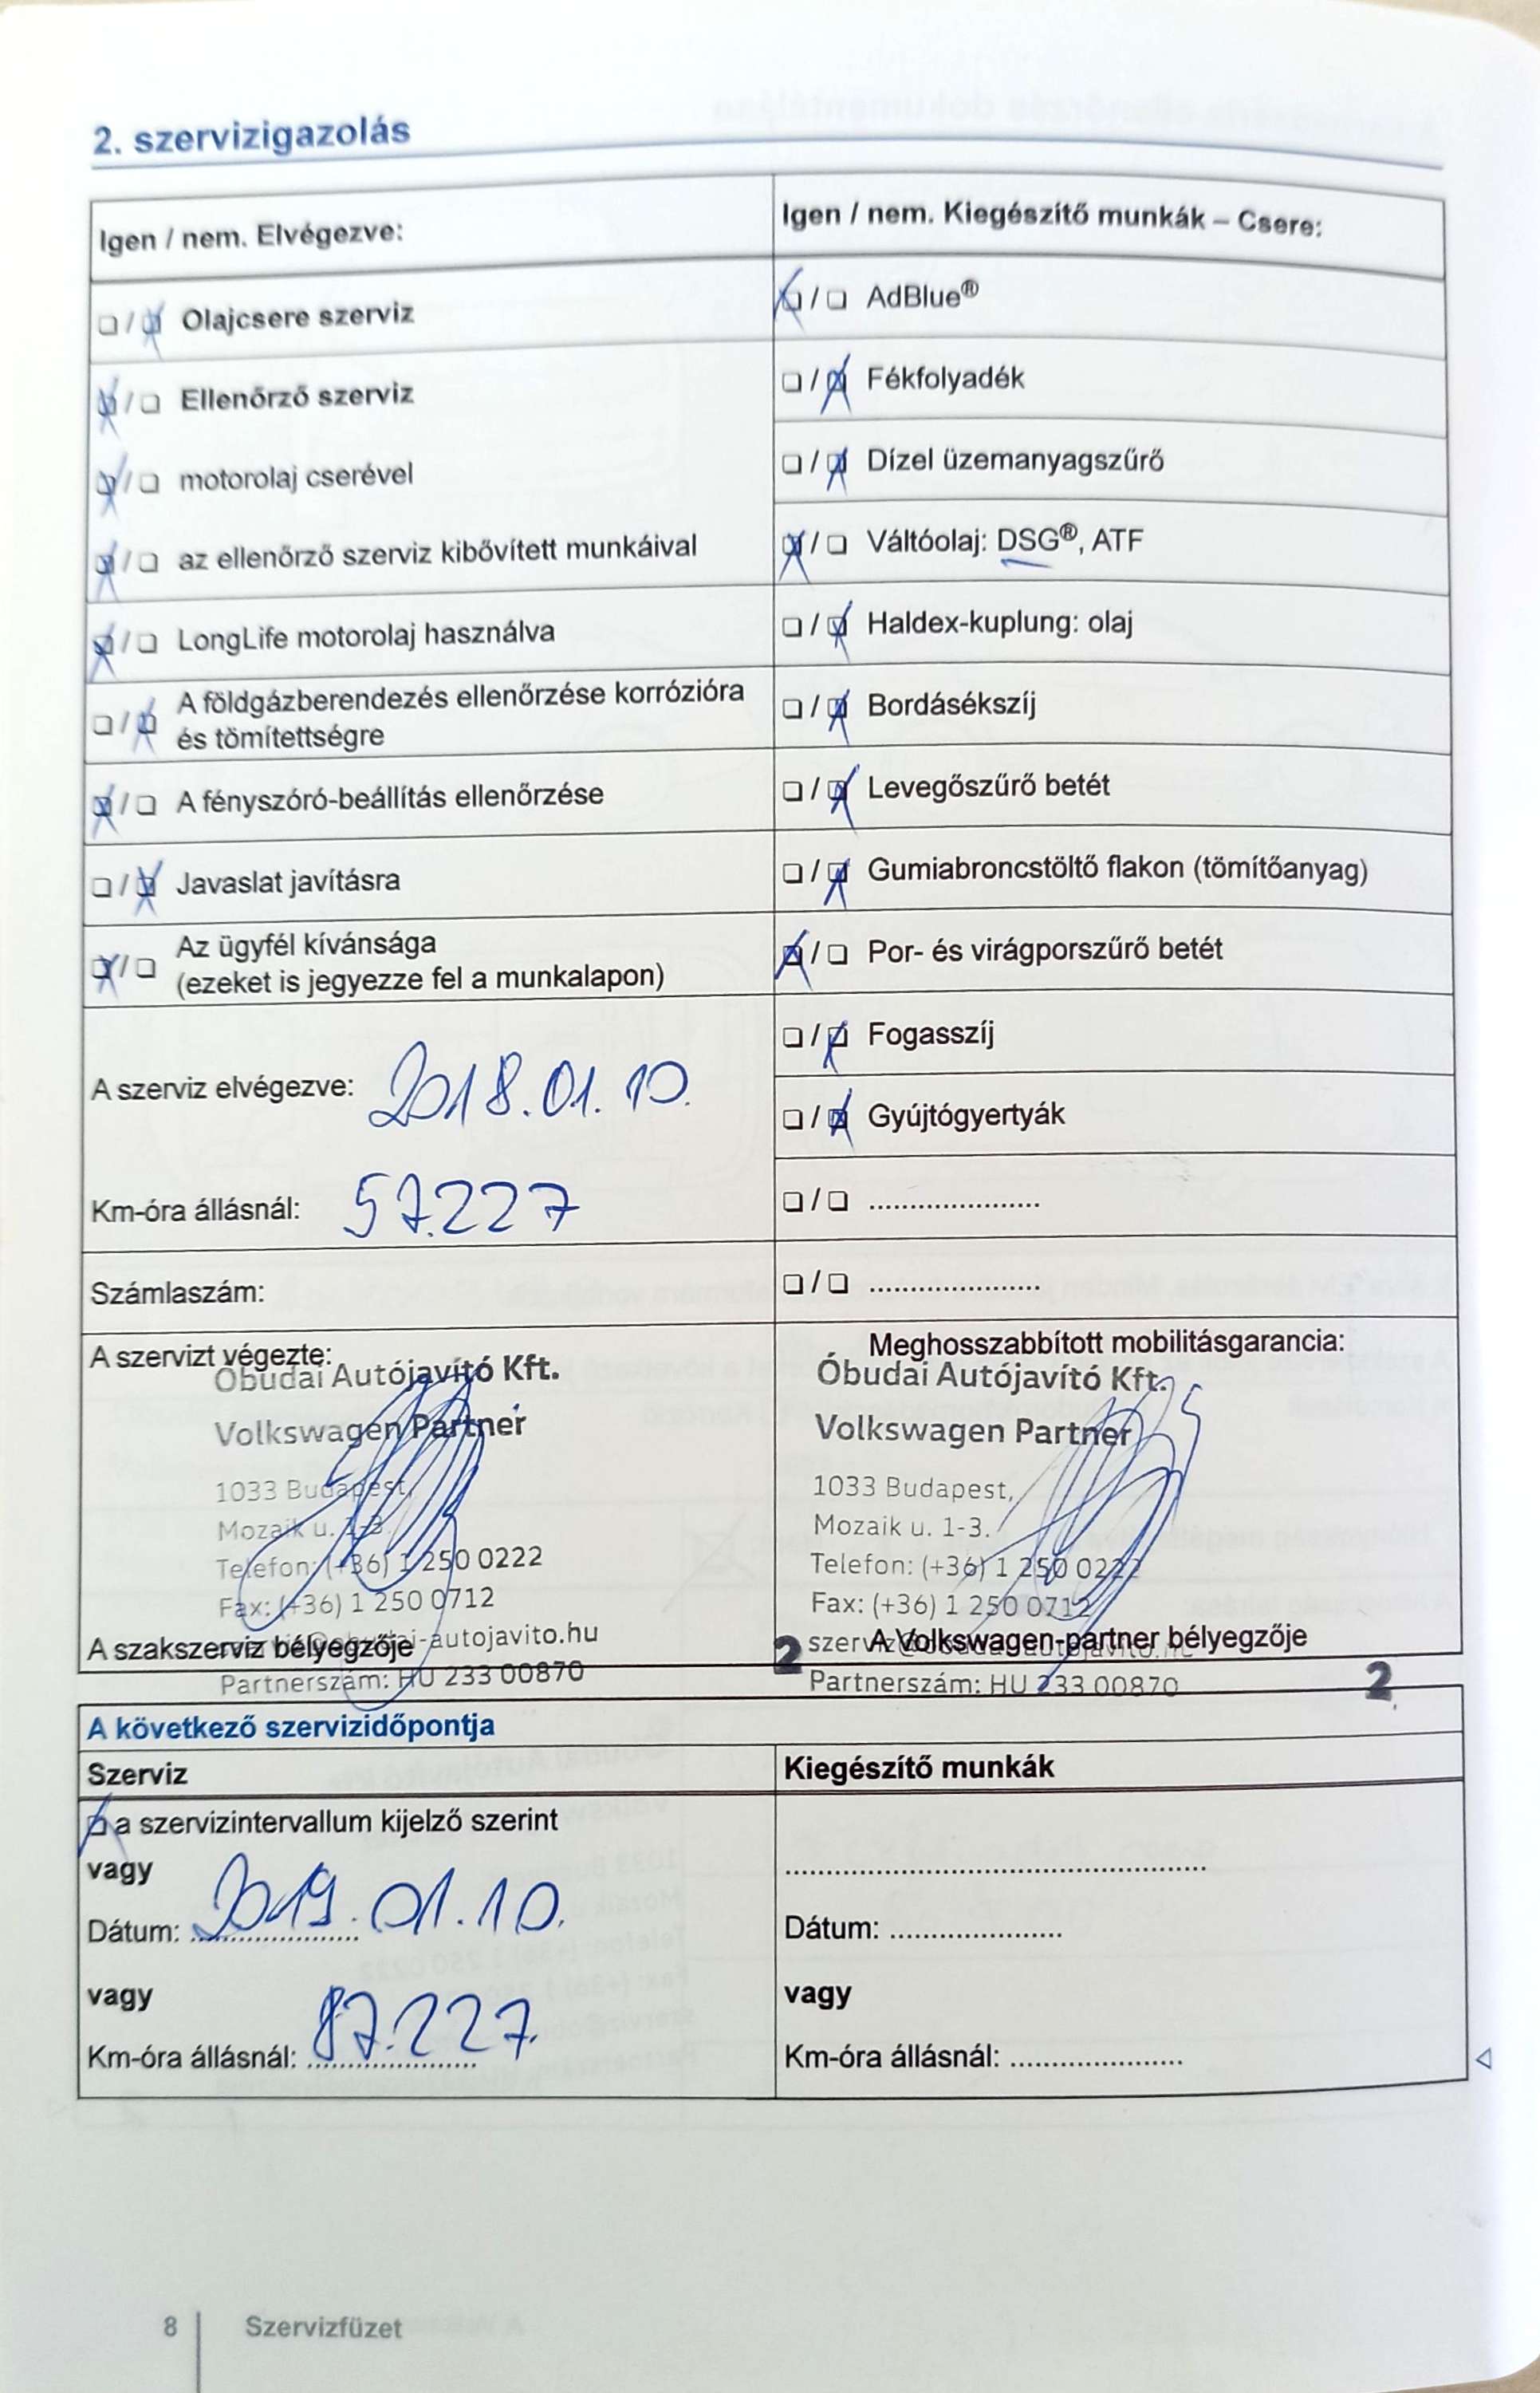 2. szervizigazolás
Igen / nem. Elvégezve:
☐ / ☒ Olajcsere szerviz
☒ / ☐ Ellenőrző szerviz
☒ / ☐ motorolaj cserével
☒ / ☐ az ellenőrző szerviz kibővített munkáival
☒ / ☐ LongLife motorolaj használva
☐ / ☒ A földgázberendezés ellenőrzése korrózióra
és tömítettségre
☒ / ☐ A fényszóró-beállítás ellenőrzése
☐ / ☒ Javaslat javításra
☒ / ☐ Az ügyfél kívánsága
(ezeket is jegyezze fel a munkalapon)
A szerviz elvégezve: 2018.01.10.
Km-óra állásnál: 57.227
Számlaszám:
A szervizt végezte:
Óbudai Autójavító Kft.
Volkswagen Partner
1033 Budapest,
Mozaik u. 1-3.
Telefon: (+36) 1 250 0222
Fax: (+36) 1 250 0712
szerviz@obudai-autojavito.hu
A szakszerviz bélyegzője
Partnerszám: HU 233 00870
2
Igen / nem. Kiegészítő munkák – Csere:
☒ / ☐ AdBlue®
☐ / ☒ Fékfolyadék
☐ / ☒ Dízel üzemanyagszűrő
☒ / ☐ Váltóolaj: DSG®, ATF
☐ / ☒ Haldex-kuplung: olaj
☐ / ☒ Bordásékszíj
☐ / ☒ Levegőszűrő betét
☐ / ☒ Gumiabroncstöltő flakon (tömítőanyag)
☒ / ☐ Por- és virágporszűrő betét
☐ / ☒ Fogasszíj
☐ / ☒ Gyújtógyertyák
☐ / ☐ .....................
☐ / ☐ .....................
Meghosszabbított mobilitásgarancia:
Óbudai Autójavító Kft.
Volkswagen Partner
1033 Budapest,
Mozaik u. 1-3.
Telefon: (+36) 1 250 0222
Fax: (+36) 1 250 0712
szerviz@obudai-autojavito.hu
A Volkswagen-partner bélyegzője
Partnerszám: HU 233 00870
2
A következő szervizidőpontja
Szerviz
☒ a szervizintervallum kijelző szerint
vagy
Dátum: 2019.01.10.
vagy
Km-óra állásnál: 87.227.
Kiegészítő munkák
....................................................
Dátum: .....................
vagy
Km-óra állásnál: .....................
8 Szervizfüzet